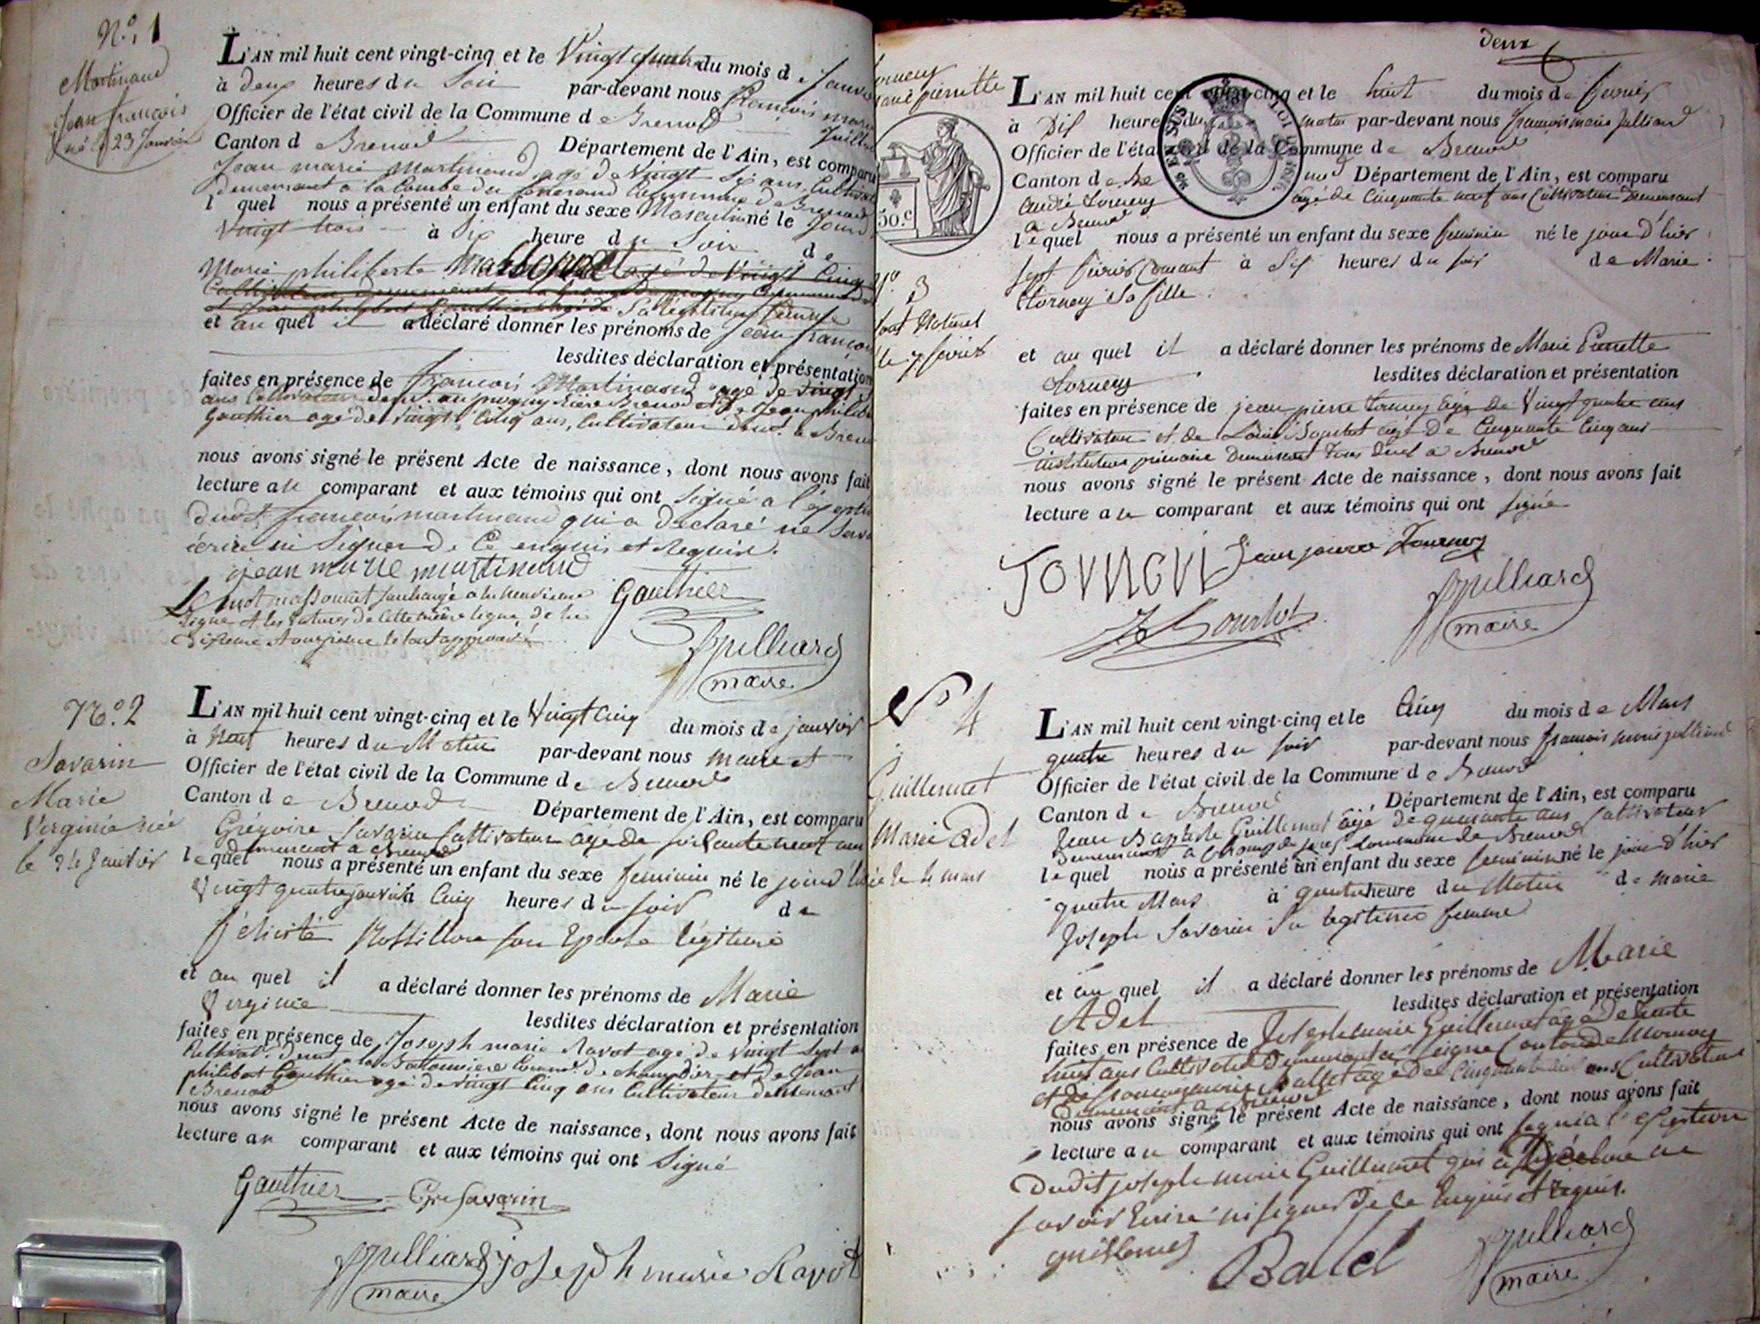 N.º 1
Martinand
Jean françois
né le 23 Janvier
L'AN mil huit cent vingt-cinq et le Vingt quatre du mois de Janvier
à deux heures du Soir par-devant nous françois marie
Juilliard
Officier de l'état civil de la Commune de Brenod
Canton de Brenod Département de l'Ain, est comparu
Jean marie Martinand agé de Vingt Six ans, Cultivat
demeurant à la Combe du Commune de Brenod
lequel nous a présenté un enfant du sexe Masculin né le Jour
Vingt trois à Six heure du Soir de
Marie philiberte agé de Vingt Cinq
Sa légitime femme
et au quel il a déclaré donner les prénoms de Jean françois
lesdites déclaration et présentation
faites en présence de françois Martinand agé de Vingt
ans Cultivateur Brenod et de Jean philibe
Gauthier agé de Vingt Cinq ans, Cultivateur demt. à Brenod
nous avons signé le présent Acte de naissance, dont nous avons fait
lecture au comparant et aux témoins qui ont signé à l'éxeptio
dudit françois martinand qui a déclaré ne Savo
écrire ni Signer de Ce enquis et Requis.
jean marie martinand
Le mot massonnet surchargé à la neuvieme
ligne et les ratures de cette même ligne, de la
dixieme et onzieme le tout approuvé
Gauthier
Jpulliard
maire
N.º 2
Savarin
Marie
Virginie née
le 24 Janvier
L'AN mil huit cent vingt-cinq et le Vingt Cinq du mois de janvier
à Neuf heures du Matin par-devant nous maire et
Officier de l'état civil de la Commune de Brenod
Canton de Brenod Département de l'Ain, est comparu
Grégoire Savarin Cultivateur agé de soixante neuf ans
demeurant à Brenod
lequel nous a présenté un enfant du sexe feminin né le jour d'hier
Vingt quatre janvier à Cinq heures du soir de
félicité Rossillon son Epouse légitime
et au quel il a déclaré donner les prénoms de Marie
Virginie
lesdites déclaration et présentation
faites en présence de Joseph marie Ravot agé de Vingt Sept a
Cultivat. demt. à la Comne. de champdor et de Jean
philibert Gauthier agé de vingt Cinq ans Cultivateur demeurant
Brenod
nous avons signé le présent Acte de naissance, dont nous avons fait
lecture au comparant et aux témoins qui ont Signé
Gauthier Gre Savarin
Jpulliard joseph marie Ravot
maire
deux
Torney
marie pierrette
50.c
N.º 3
Enfant Naturel
le 7 février
L'AN mil huit cent vingt-cinq et le huit du mois de fevrier
à Dix heures du matin par-devant nous françois marie Julliard
Officier de l'état civil de la Commune de Brenod
Canton de Brenod Département de l'Ain, est comparu
André Torney agé de Cinquante neuf ans Cultivateur Demeurant
à Brenod
lequel nous a présenté un enfant du sexe feminin né le jour d'hier
Sept fevrier Courant à Six heures du soir de Marie
Torney Sa fille
et au quel il a déclaré donner les prénoms de Marie Pierrette
Torney
lesdites déclaration et présentation
faites en présence de jean pierre Torney agé de Vingt quatre ans
Cultivateur et de Louis Bourlot agé de Cinquante Cinq ans
instituteur primaire Demeurant Tous deux à Brenod
nous avons signé le présent Acte de naissance, dont nous avons fait
lecture au comparant et aux témoins qui ont signé
Jean pierre Tourney
Bourlot
Jpulliard
maire
Nº 4
Guillermet
Marie Adel
née le 4 mars
L'AN mil huit cent vingt-cinq et le Cinq du mois de Mars
quatre heures du soir par-devant nous françois marie julliard
Officier de l'état civil de la Commune de Brenod
Canton de Brenod Département de l'Ain, est comparu
Jean Baptiste Guillermet agé de quarante ans Cultivateur
Demeurant à Commune de Brenod
lequel nous a présenté un enfant du sexe feminin né le jour d'hier
quatre Mars à quatre heure du Matin de marie
Joseph Savarin Sa legitime femme
et au quel il a déclaré donner les prénoms de Marie
Adel
lesdites déclaration et présentation
faites en présence de Joseph marie Guillermet agé de Trente
huit ans Cultivateur Demeurant à Leigne Canton de Mornay
et de françois marie Ballet agé de Cinquante ans Cultivateur
Demeurant à Brenod
nous avons signé le présent Acte de naissance, dont nous avons fait
lecture au comparant et aux témoins qui ont signé à l'exeption
Dudit joseph marie Guillermet qui à Déclaré ne
savoir Ecrire ni signer de Ce Enquis et requis.
guillermet
Ballet
Jpulliard
maire